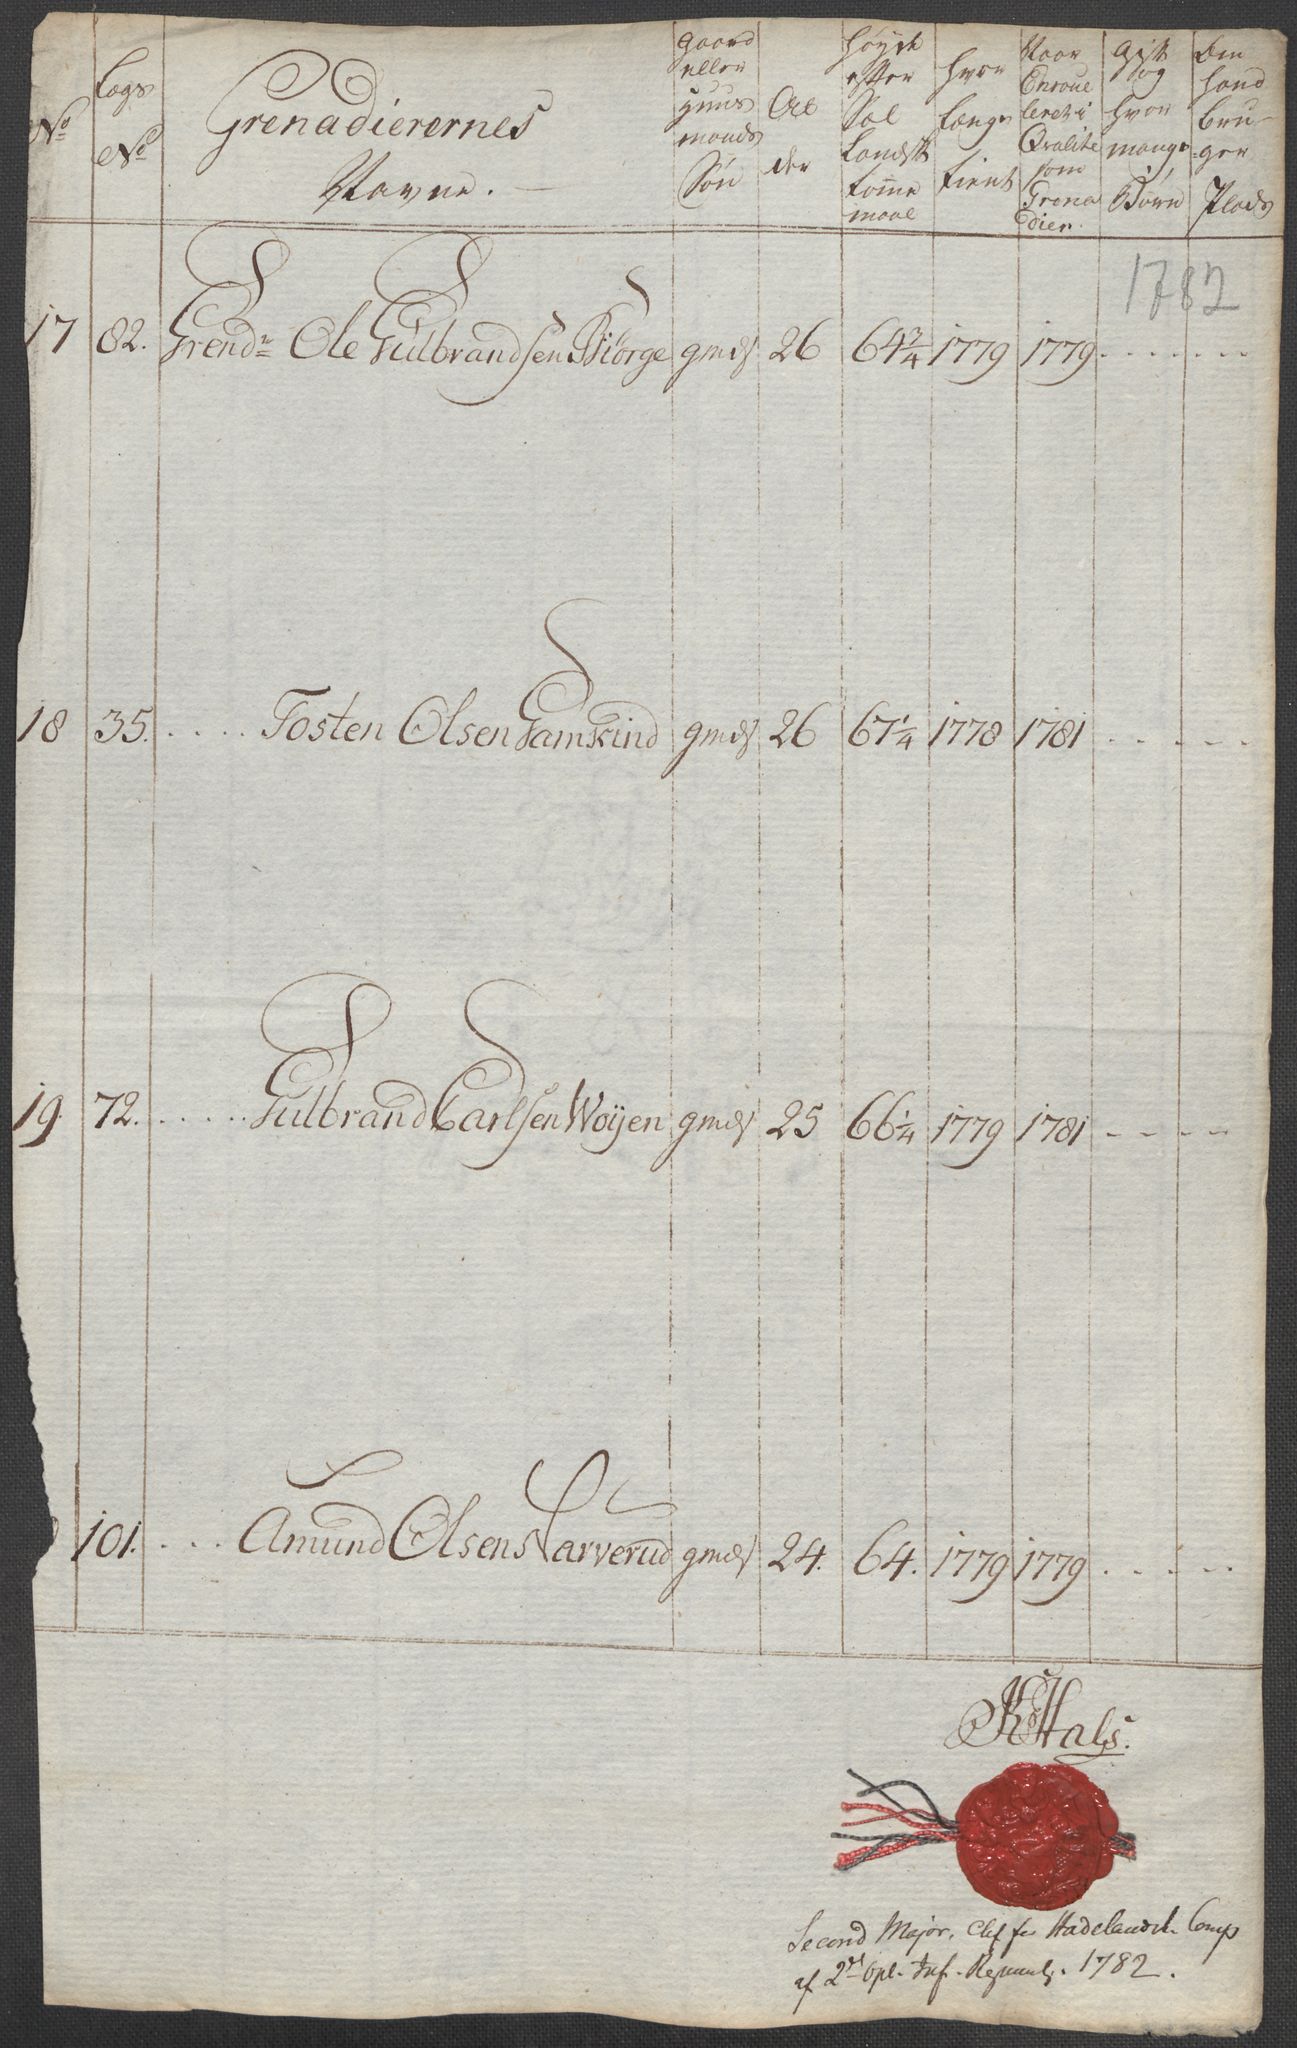 No
Lægs No
Grenadierernes Navne.
Gaard eller Huus mands Søn
Al der
Høyde efter Sal Landsk tomme maal
hvor længe tient
Naar Enroulleret i Qvalite som Grenadier.
Gift og hvor mange Børn
Den hand bruger Plads
1782
17 82. Grendr Ole Gulbrandsen Biørge gmds 26 64 3/4 1779 1779. . . . . . . .
18 35. . . . . Tosten Olsen Gamkind gmds 26 67 1/4 1778 1781 . . . . .
19. 72. . . . . . Gulbrand Carlsen Woÿen gmds 25 66 1/4 1779 1781 - - - - -
101. . . . Amund Olsen Narverud gmds 24. 64. 1779 1779 . . . . . .
Hals.
Second Major, Chef for Hadelandske Comp
af 2det Opl. Inf. Regiment. 1782.